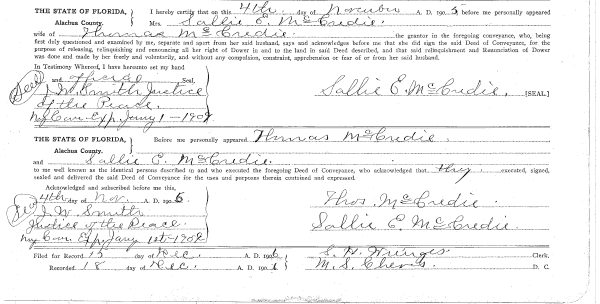 THE STATE OF FLORIDA, I hereby certify that on this 4th day of November A. D. 190 5 before me personally appeared
Alachua County. Mrs. Sallie E. McCredie
wife of Thomas McCredie. the grantor in the foregoing conveyance, who, being
first duly questioned and examined by me, separate and apart from her said husband, says and acknowledges before me that she did sign the said Deed of Conveyance, for the
purpose of releasing, relinquishing and renouncing all her right of Dower in and to the land in said Deed described, and that said relinquishment and Renunciation of Dower
was done and made by her freely and voluntarily, and without any compulsion, constraint, apprehension or fear of or from her said husband.
In Testimony Whereof, I have hereunto set my hand
and official Seal.
Seal
J. W. Smith Justice
of the Peace.
My Com. Exp. Jany 1 - 1909
Sallie E. McCredie. [SEAL]
THE STATE OF FLORIDA, Before me personally appeared Thomas McCredie
Alachua County.
and Sallie E. McCredie.
to me well known as the identical persons described in and who executed the foregoing Deed of Conveyance, who acknowledged that they executed, signed,
sealed and delivered the said Deed of Conveyance for the uses and purposes therein contained and expressed.
Acknowledged and subscribed before me this,
4th day of Nov. A. D. 190 5.
Seal
J. W. Smith
Justice of the Peace.
My Com. Exp. Jany 1st - 1909
Thos. McCredie
Sallie E. McCredie.
Filed for Record 15 day of Dec. A. D. 190 6 S. H. Wienges Clerk.
Recorded 18 day of Dec. A. D. 190 6 M. S. Cheves D. C.